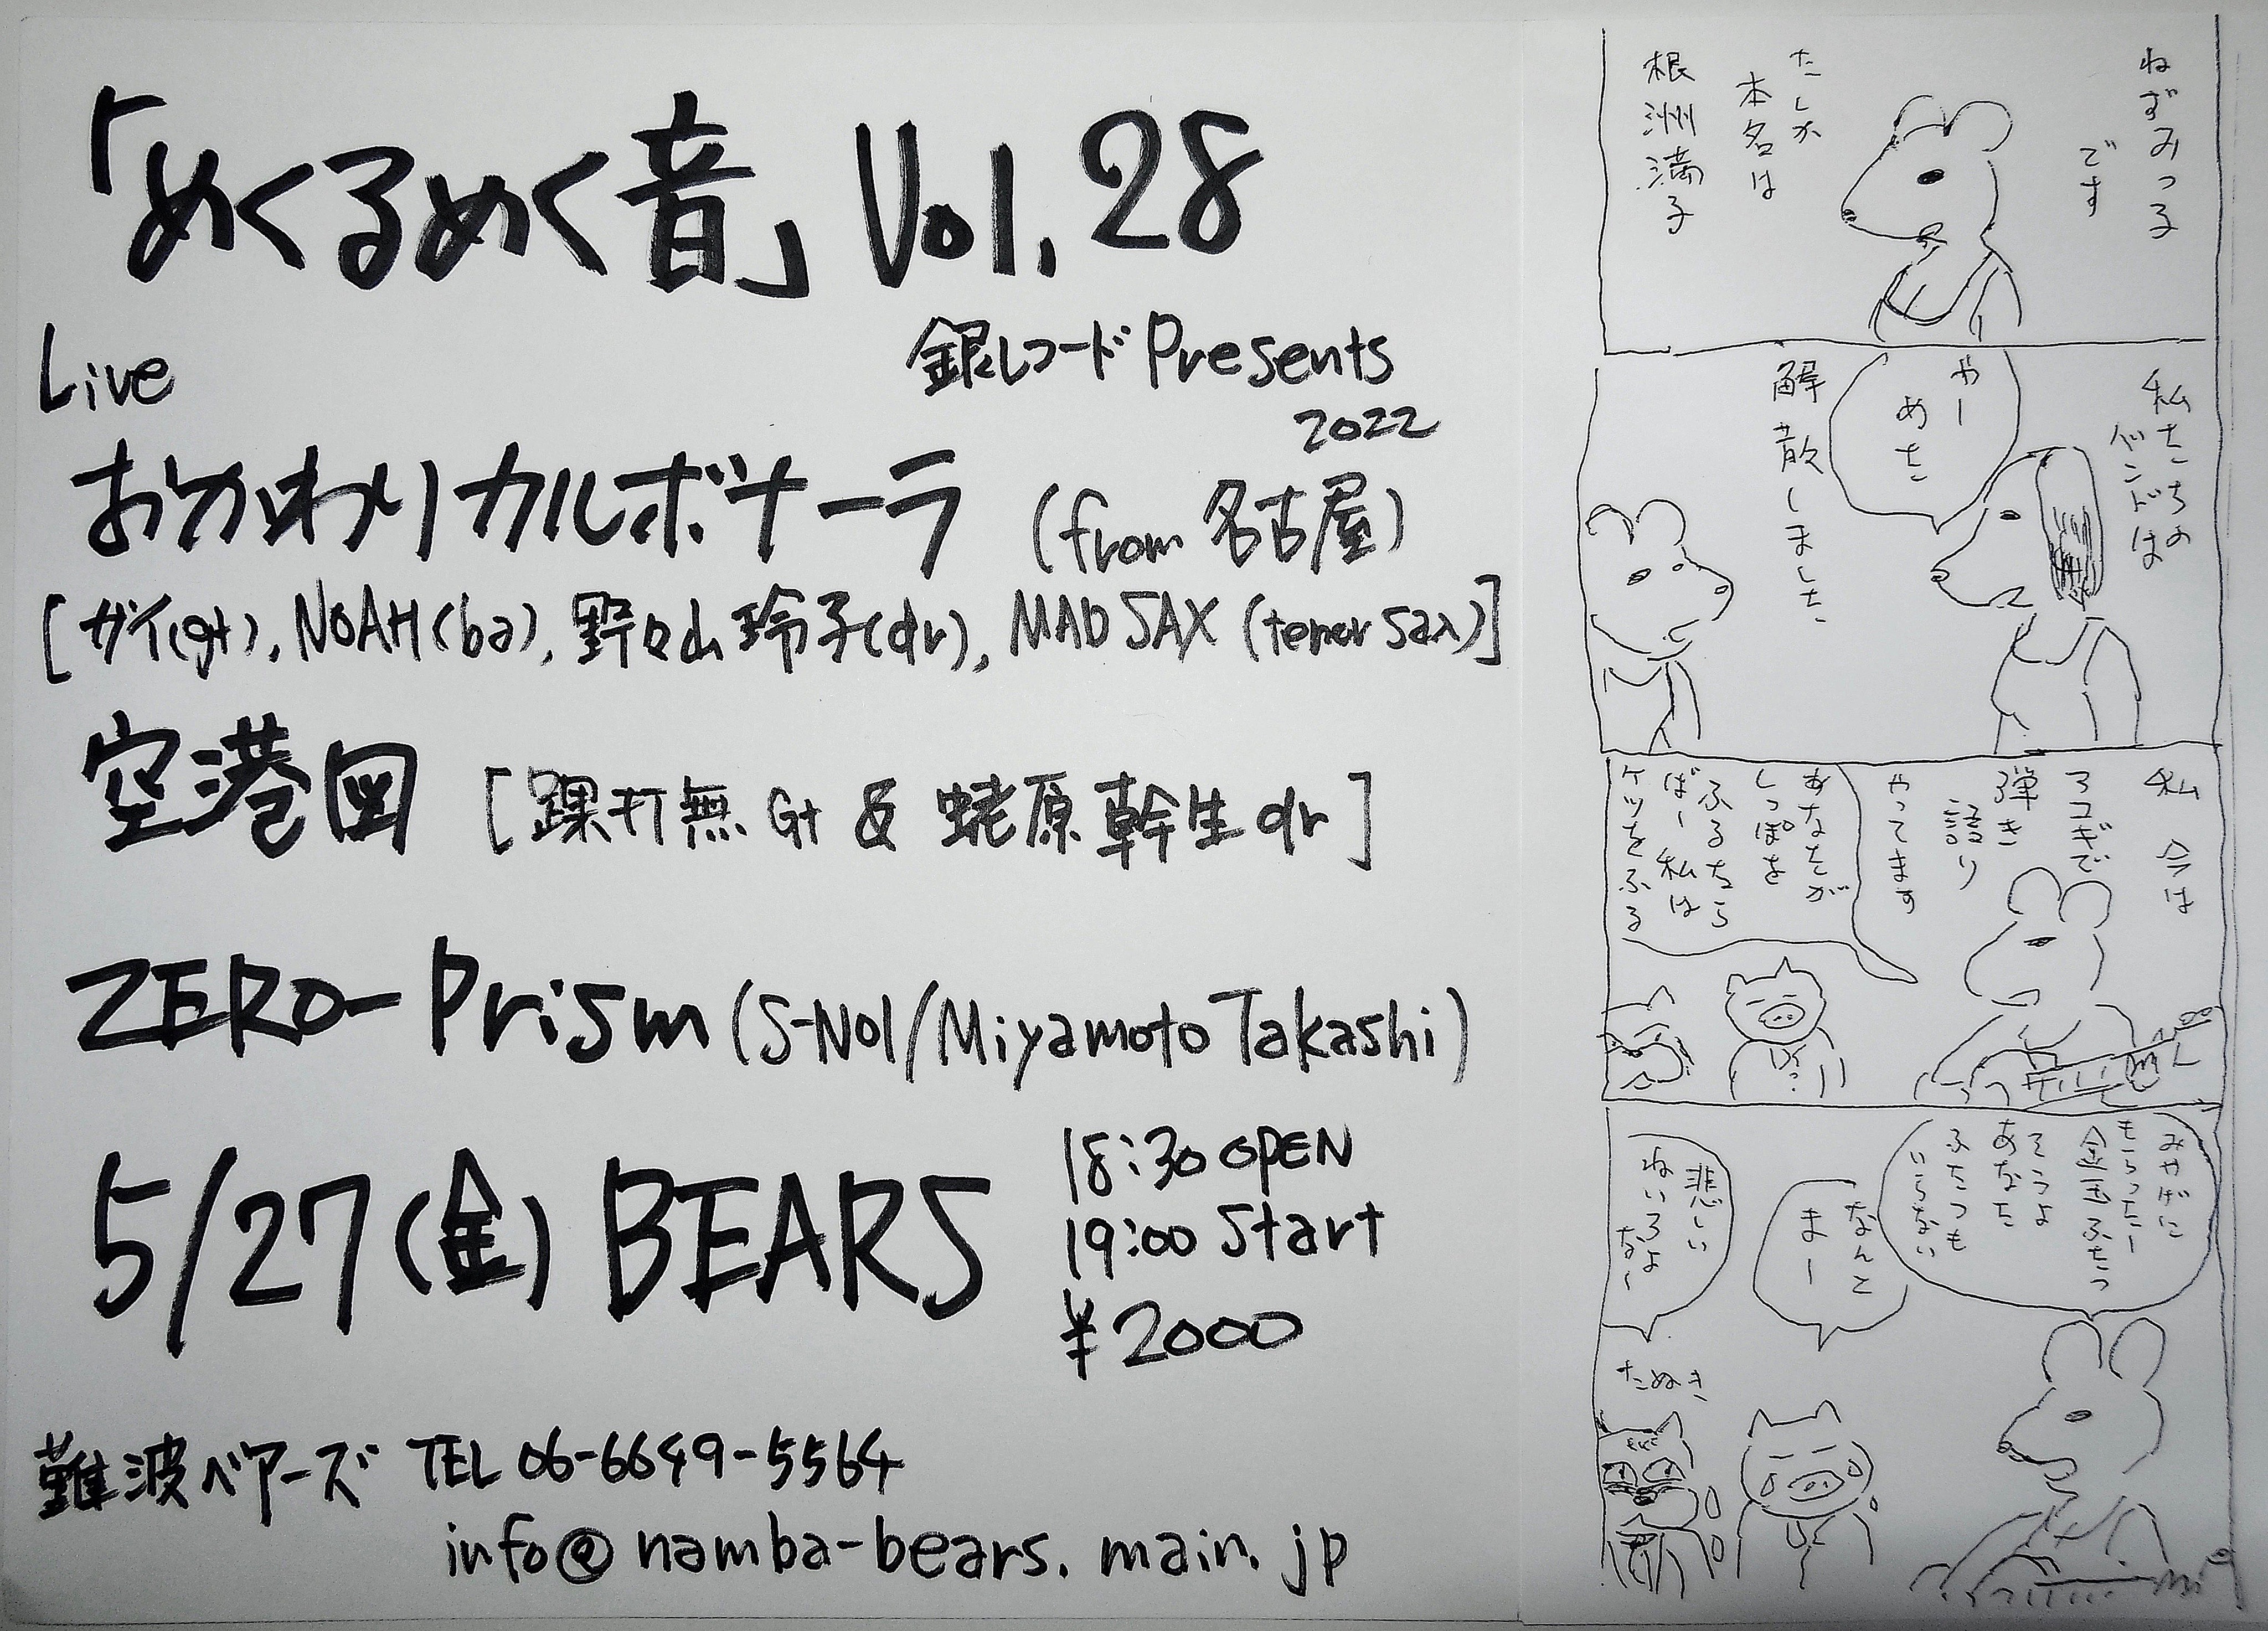 「めくるめく音」Vol.28
銀レコード Presents
2022
Live
おかわりカルボナーラ (from 名古屋)
[ガイ(gt), NOAH(ba), 野々山玲子(dr), MAD SAX (tenor sax)]
空港図 [裸打無 Gt & 蛯原幹生 dr]
ZERO-Prism (S-NOI/Miyamoto Takashi)
5/27(金) BEARS
18:30 OPEN
19:00 Start
¥2000
難波ベアーズ TEL 06-6649-5564
info@namba-bears.main.jp
ねずみっ子
です
たしか
本名は
根洲満子
私たちの
バンドは
やー
めた
解散しました
私 今は
アコギで
弾き
語り
やってます
あなたが
しっぽを
ふるなら
ばー 私は
ケツをふる
みやげに
もらったー
金玉ふたつ
そうよ
あなた
ふたつも
いらない
なんと
まー
悲しい
ねいろよ
なー
たぬき